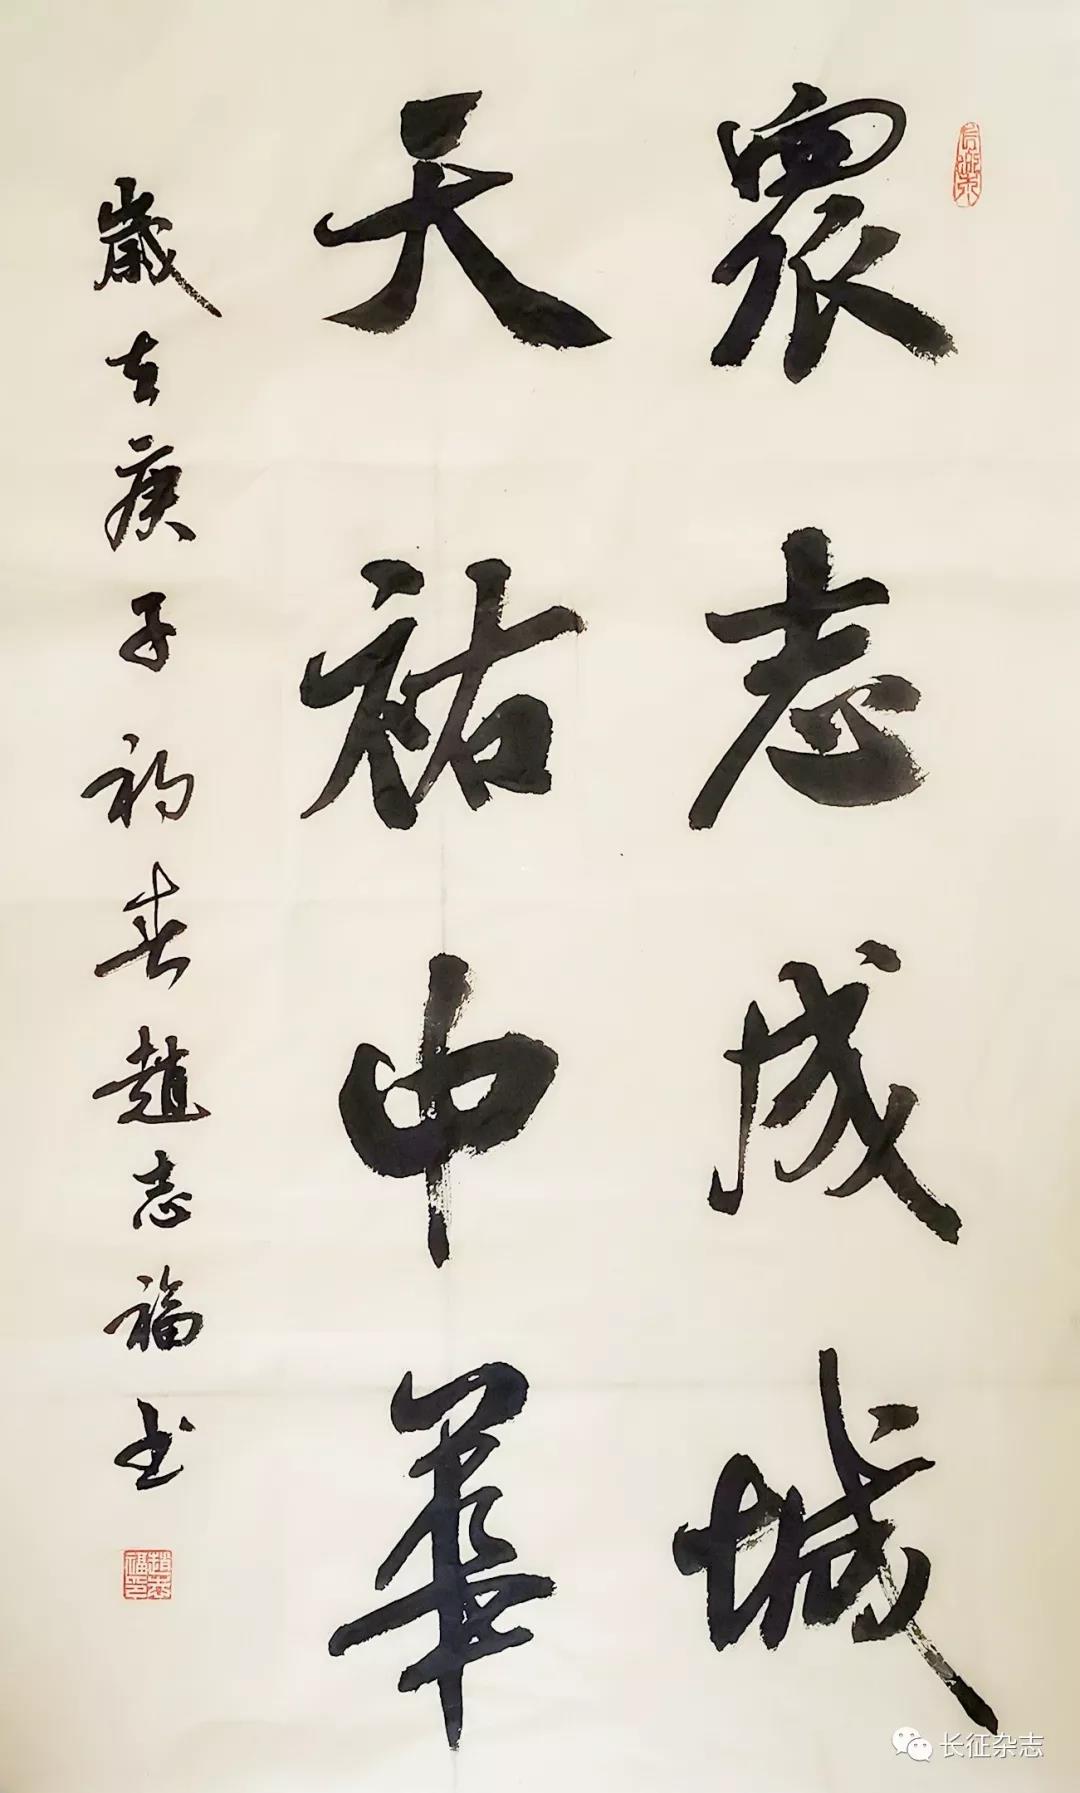 眾志成城
天祐中華
歲在庚子初春趙志福书
長樂
趙志福印
长征杂志